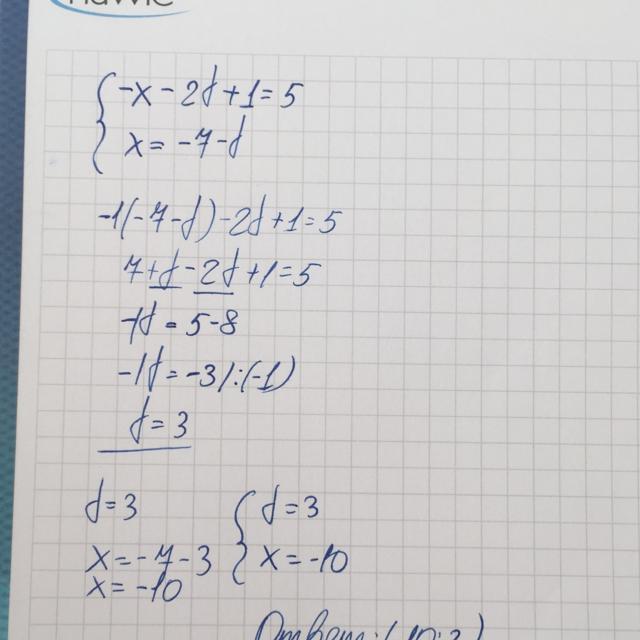 {-x-2y+1=5
x=-7-y
-1(-7-y)-2y+1=5
7+y-2y+1=5
-1y=5-8
-1y=-3/:(-1)
y=3
y=3 {y=3
x=-7-3 x=-10
x=-10
Ответ:(